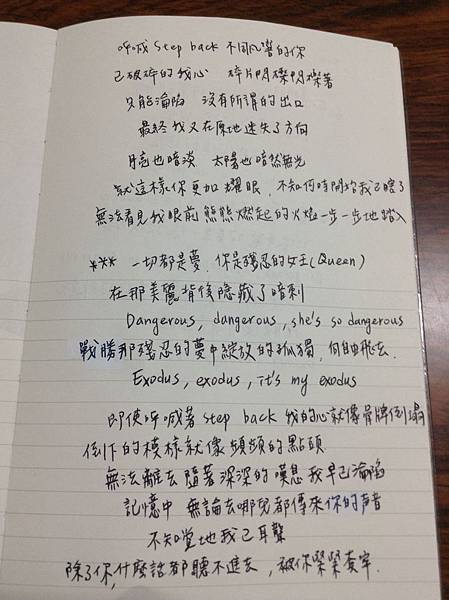 呼喊 Step back 不同風響的你
已破碎的我心 碎片閃爍閃爍著
只能淪陷 沒有所謂的出口
最終我又在原地迷失了方向
月亮也暗淡 太陽也暗然無光
就這樣你更加耀眼，不知何時開始我已瞎了
無法看見我眼前熊熊燃起的火焰一步一步地踏入
*** 一切都是夢，你是殘忍的女王(Queen)
在那美麗背後隱藏了暗刺
Dangerous, dangerous, she's so dangerous
戰勝那殘忍的夢中綻放的孤獨，向自由飛去.
Exodus, exodus, it's my exodus
即使呼喊著 step back 我的心就像骨牌倒塌
倒下的模樣就像頻頻的點頭
無法離去 隨著深深的嘆息 我早已淪陷
記憶中 無論去哪兒都傳來你的声音
不知覺地我已耳聾
除了你,什麼話都聽不進去，被你緊緊套牢.